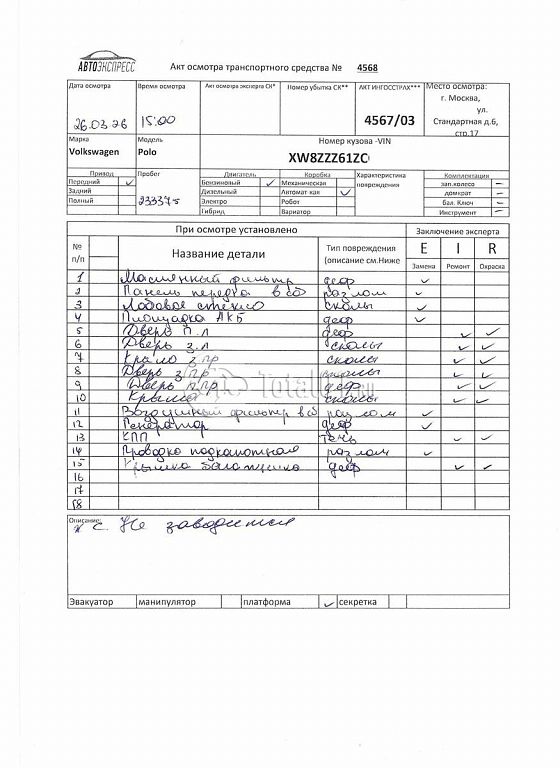 АВТОЭКСПРЕСС
Акт осмотра транспортного средства № 4568
Дата осмотра 26.03.26
Время осмотра 15:00
Акт осмотра эксперта СК*
Номер убытка СК**
АКТ ИНГОССТРАХ*** 4567/03
Место осмотра: г. Москва, ул. Стандартная д.6, стр.17
Марка Volkswagen
Модель Polo
Номер кузова -VIN
XW8ZZZ61ZC
Привод Пробег Двигатель Коробка Характеристика повреждения Комплектация
Передний ✓ Бензиновый ✓ Механическая зап.колесо –
Задний Дизельный Автомат кая ✓ домкрат –
Полный 233375 Электро Робот бал. Ключ –
Гибрид Вариатор Инструмент –
При осмотре установлено Заключение эксперта
№ п/п Название детали Тип повреждения (описание см.Ниже E Замена I Ремонт R Окраска
1 Маслянный фильтр деф ✓
2 Панель передка в сб разлом ✓
3 Лобовое стекло сколы ✓
4 Площадка АКБ деф ✓
5 Дверь п.л деф ✓ ✓
6 Дверь з.л сколы ✓ ✓
7 Крыло з.пр сколы ✓ ✓
8 Дверь з.пр сколы ✓ ✓
9 Дверь п.пр деф ✓ ✓
10 Крыша сколы ✓ ✓
11 Воздушный фильтр в сб разлом ✓
12 Генератор деф ✓
13 КПП течь ✓ ✓
14 Проводка подкапотная разлом ✓
15 Крышка багажника деф ✓ ✓
16
17
18
Описание:
Не заводится
Эвакуатор манипулятор платформа ✓ секретка